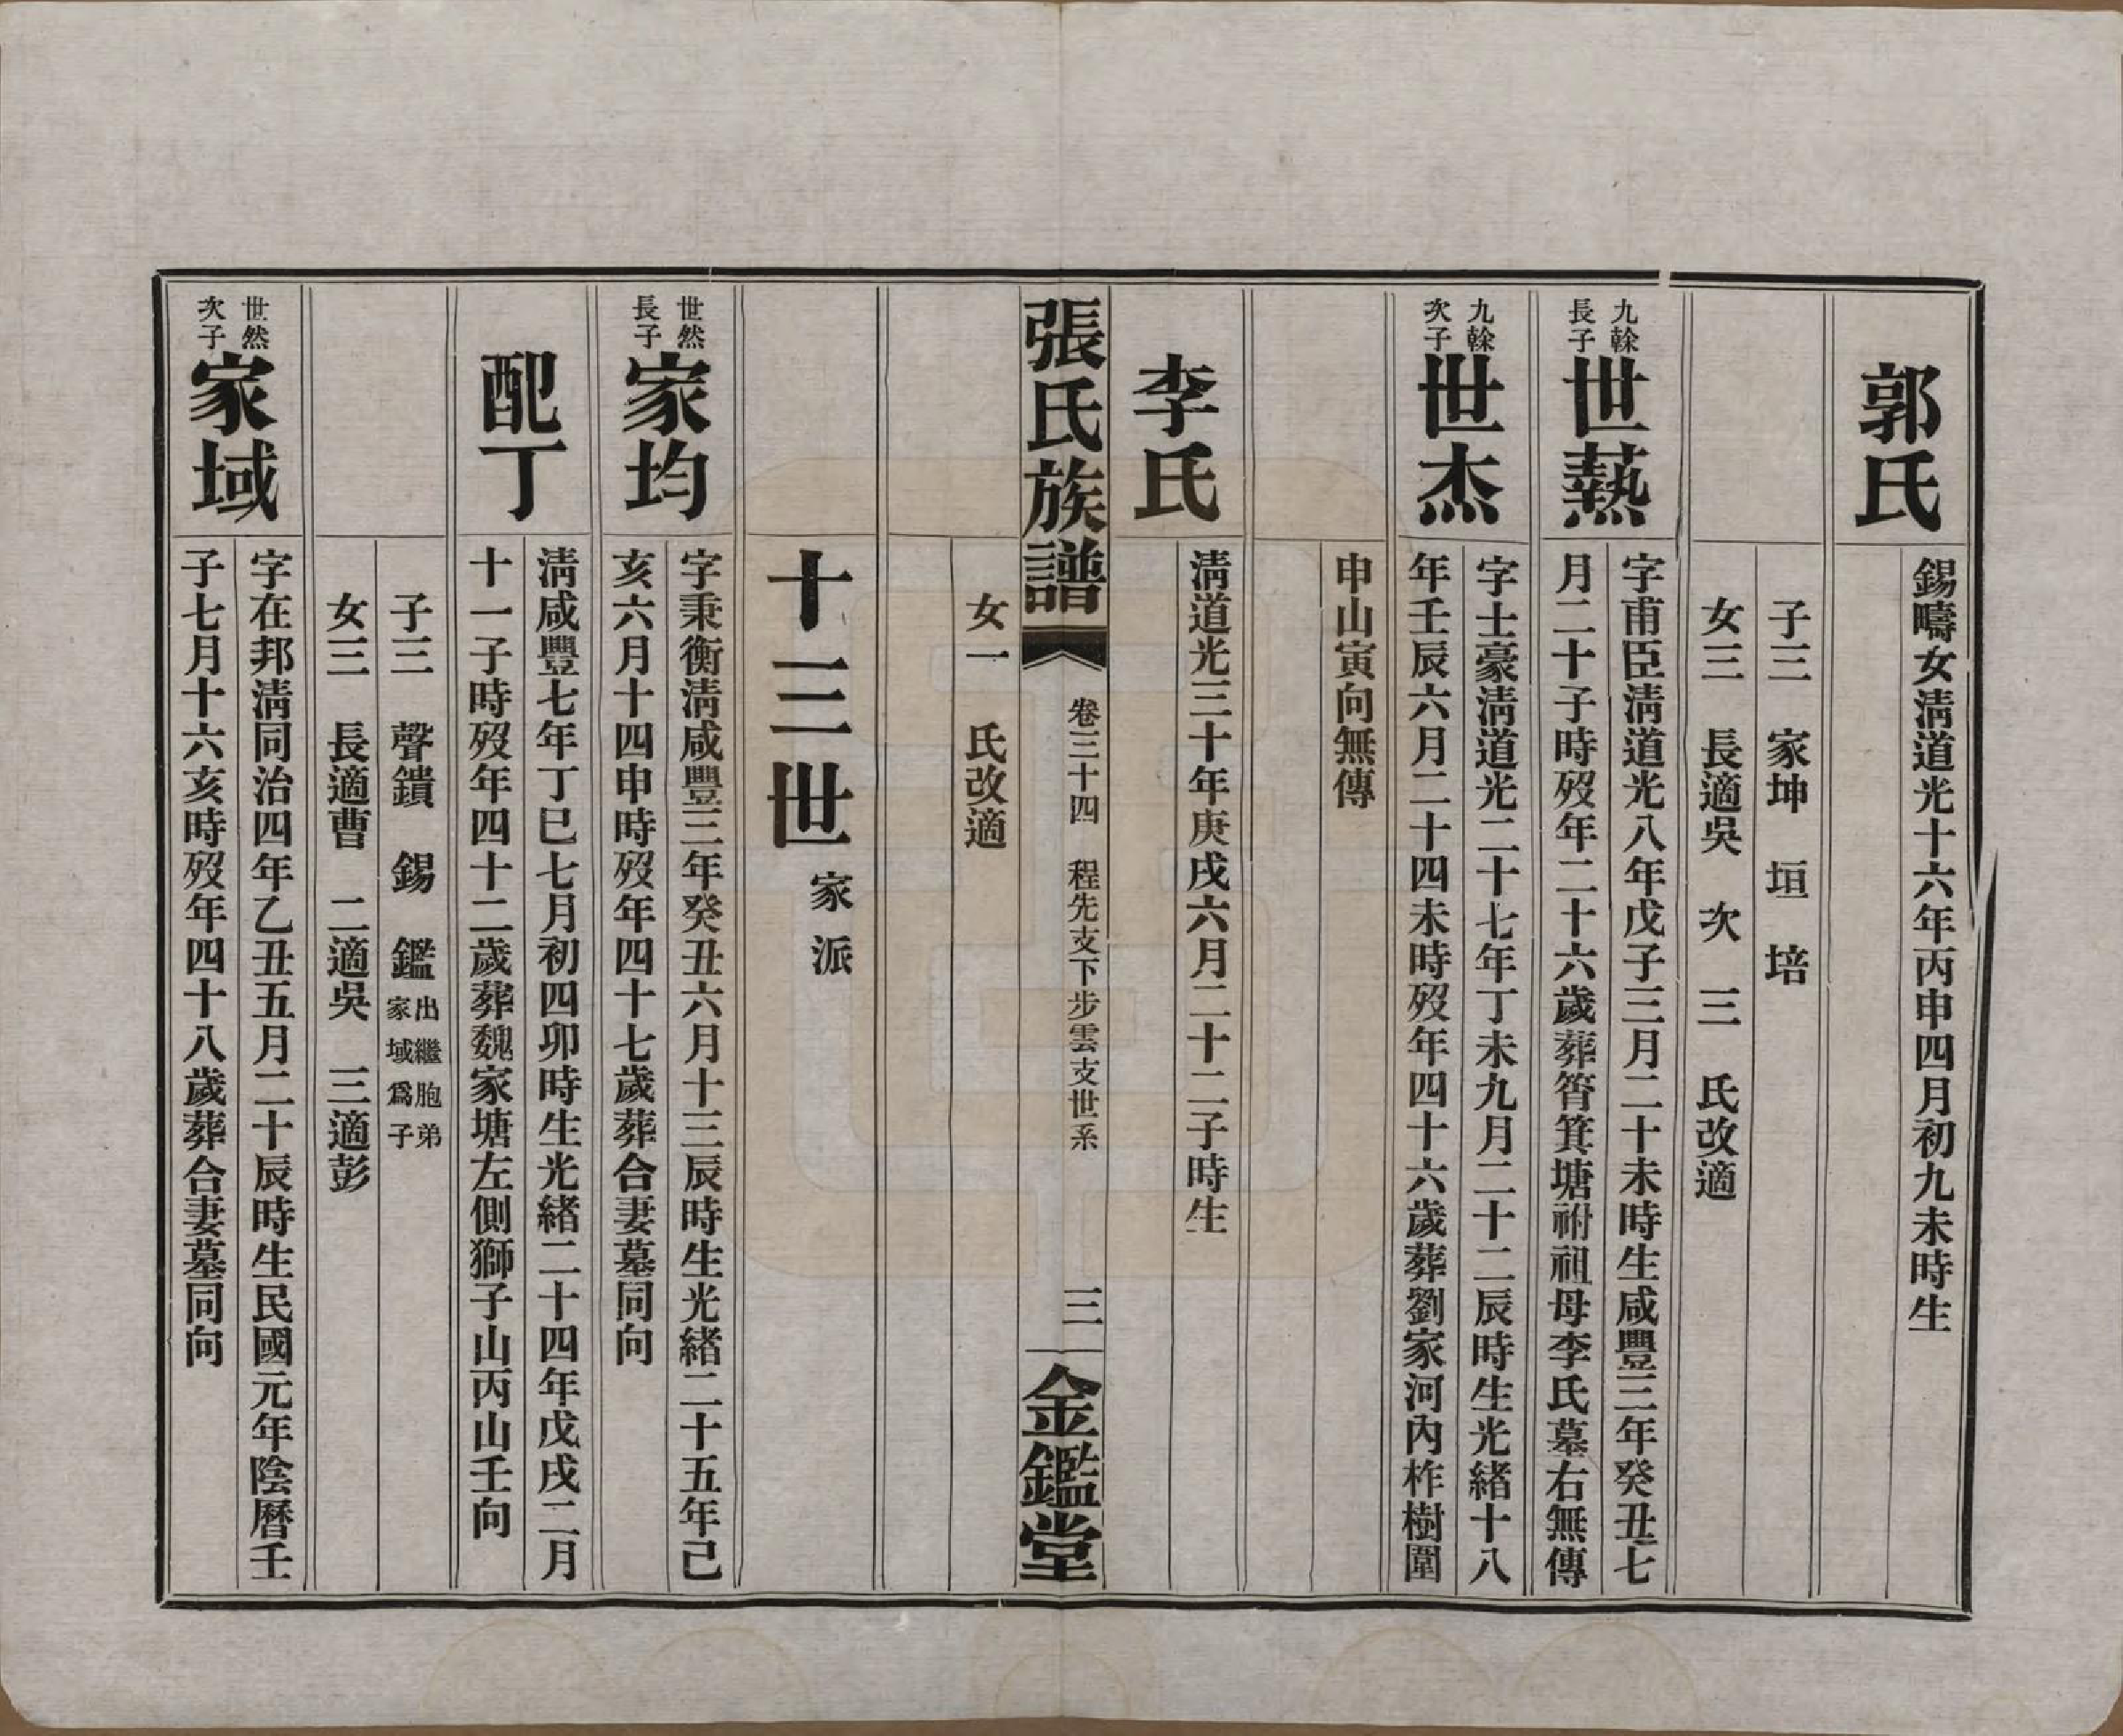 郭氏
錫疇女淸道光十六年丙申四月初九未時生
子三　家坤　垣　培
女三　長適吳　次　三　氏改適
九榦長子
世爇
字甫臣淸道光八年戊子三月二十未時生咸豐三年癸丑七
月二十子時歿年二十六歲葬筲箕塘祔祖母李氏墓右無傳
九榦次子
世杰
字士豪淸道光二十七年丁未九月二十二辰時生光緒十八
年壬辰六月二十四未時歿年四十六歲葬劉家河內柞樹圍
申山寅向無傳
李氏
淸道光三十年庚戌六月二十二子時生
張氏族譜
卷三十四　程先支下步雲支世系
三
金鑑堂
女一　氏改適
十三世
家派
世然長子
家均
字秉衡淸咸豐三年癸丑六月十三辰時生光緒二十五年己
亥六月十四申時歿年四十七歲葬合妻墓同向
配丁
淸咸豐七年丁巳七月初四卯時生光緒二十四年戊戌二月
十一子時歿年四十二歲葬魏家塘左側獅子山丙山壬向
子三　聲鐀　錫　鑑出繼胞弟家域爲子
女三　長適曹　二適吳　三適彭
世然次子
家域
字在邦淸同治四年乙丑五月二十辰時生民國元年陰曆壬
子七月十六亥時歿年四十八歲葬合妻墓同向